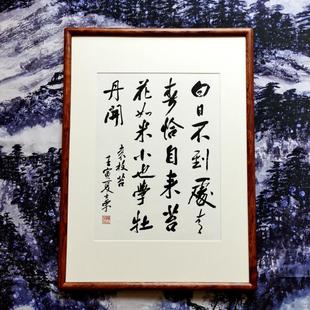 白日不到處青
春恰自来苔
花如米小也學牡
丹開
袁枚苔
壬寅夏